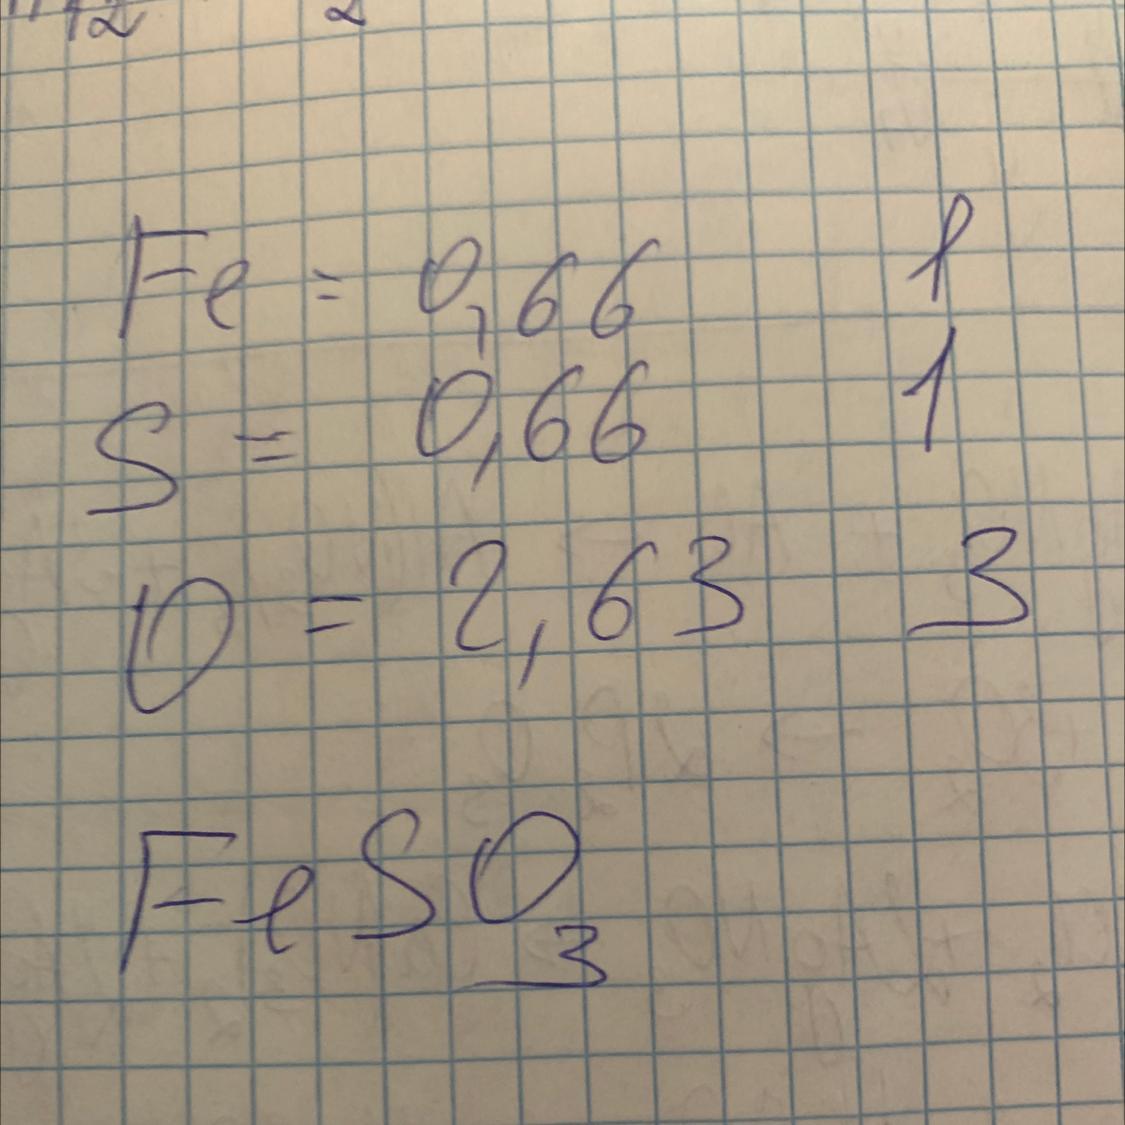 Fe = 0,66 1
S = 0,66 1
O = 2,63 3
FeSO3